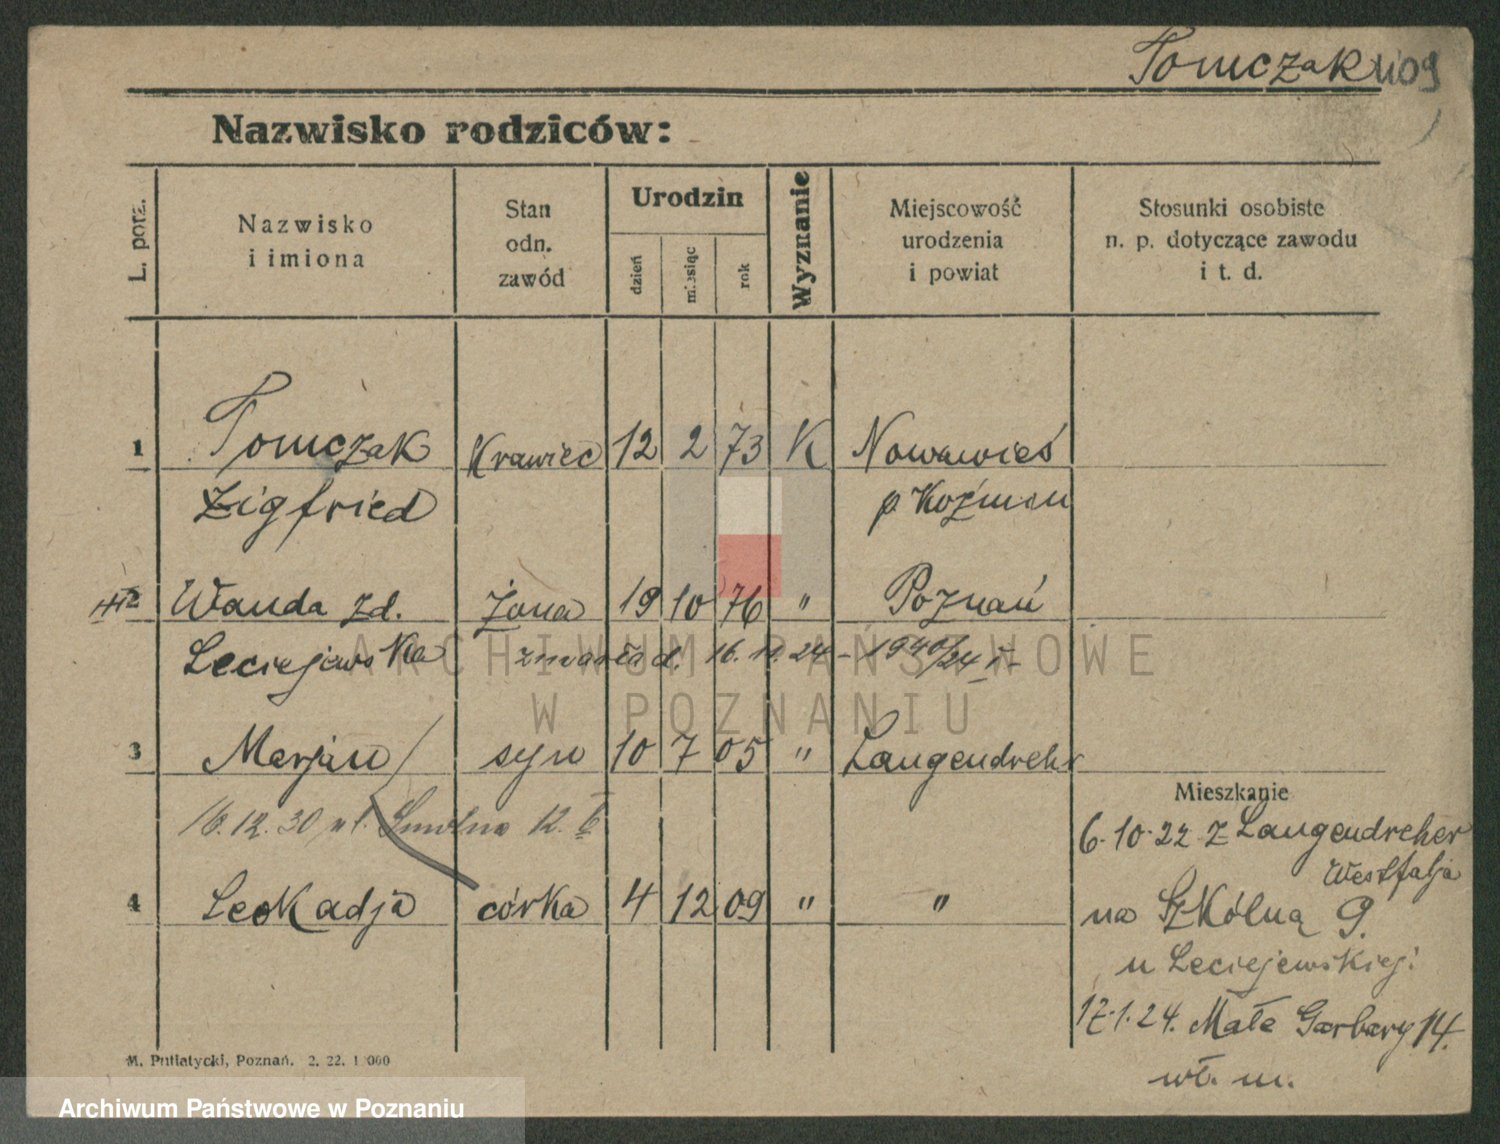 Tomczak 1109
Nazwisko rodziców:
L. porz.
Nazwisko
i imiona
Stan
odn.
zawód
Urodzin
dzień
miesiąc
rok
Wyznanie
Miejscowość
urodzenia
i powiat
Stosunki osobiste
n. p. dotyczące zawodu
i t. d.
1 Tomczak Krawiec 12 2 73 K Nowawieś
Zigfried p Koźmin
2 Wanda zd. żona 19 10 76 " Poznań
Leciejewska zmarła d. 16. 11. 24 - 1940/24
3 Marjan syn 10 7 05 " Langendrehr
16.12.30 ul. Smolna 12.
4 Leokadja córka 4 12 09 " "
Mieszkanie
6.10.22 z Langendreher
Westfalja
na Szkólną 9.
u Leciejewskiej.
17.1.24. Małe Garbary 14.
wł. m.
M. Putiatycki, Poznań. 2. 22. 1 000
ARCHIWUM PAŃSTWOWE
W POZNANIU
Archiwum Państwowe w Poznaniu